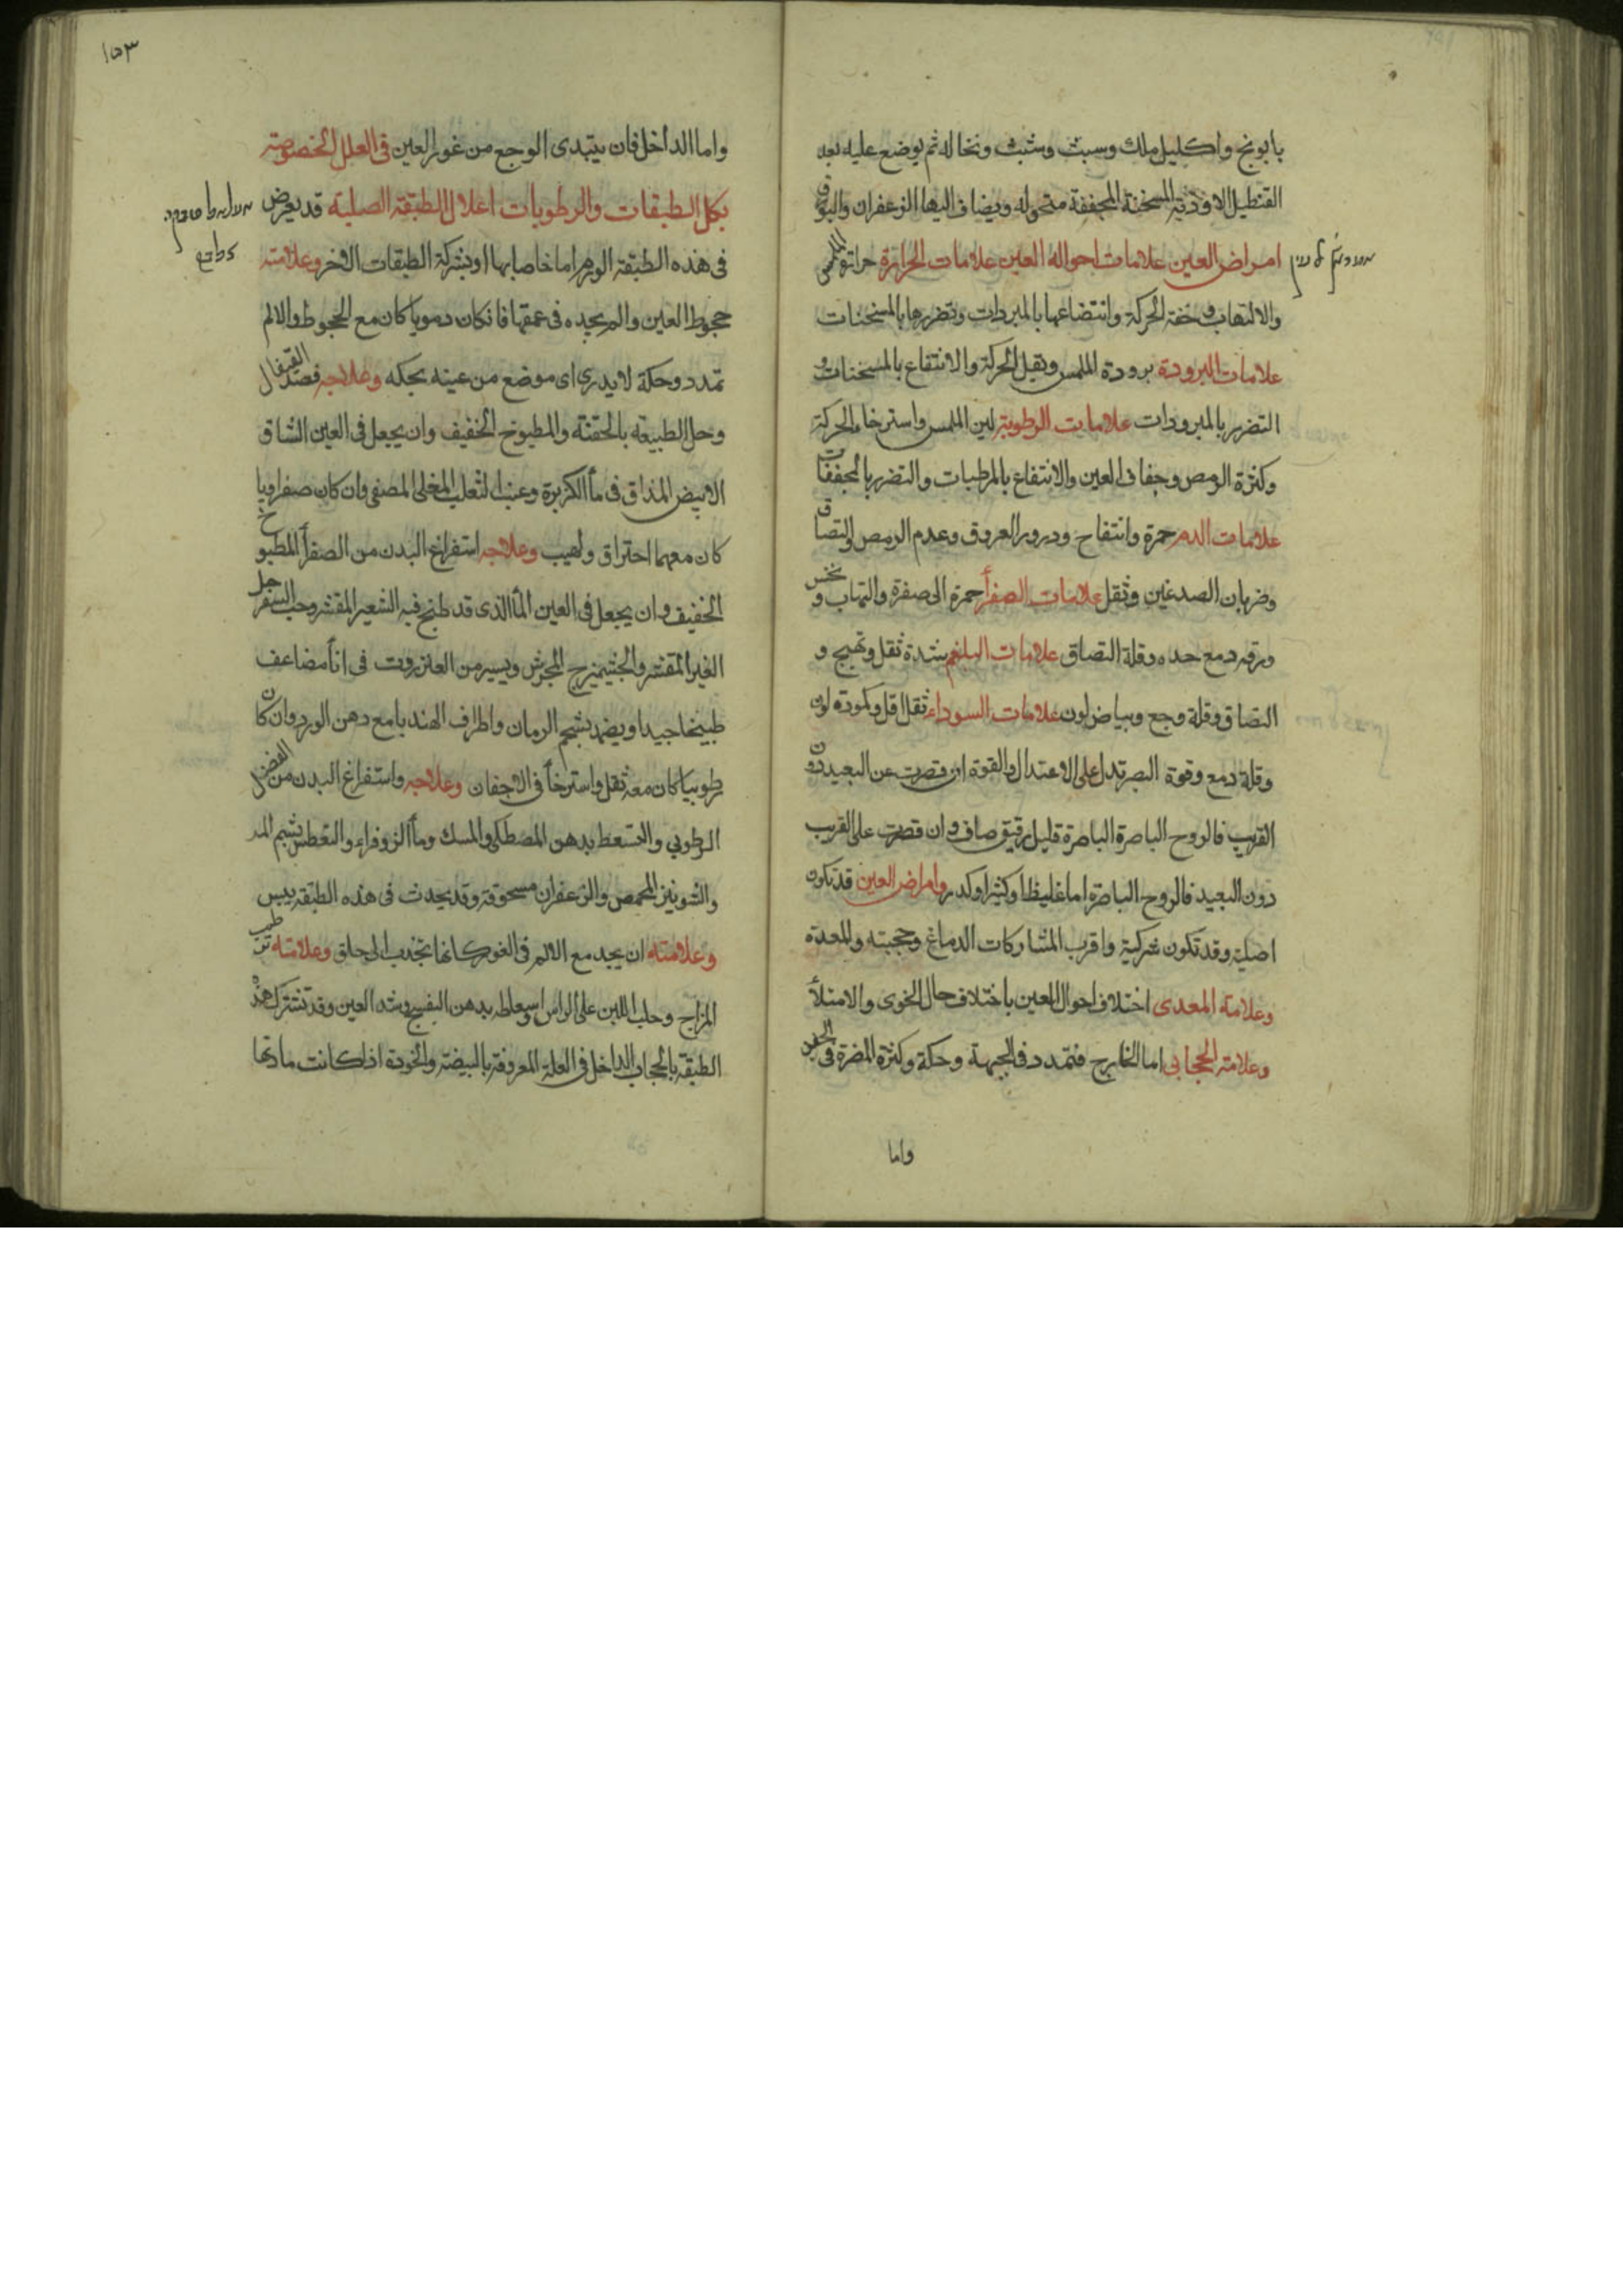 بابونج واكليل ملك وسبث وشبث ونخاله ثم يوضع عليه بعد
القنطيل الاودية المسخنة المجففة متحوله ويضاف اليها الزعفران والبورق
امراض العين علامات احواله العين علامات الحرارة حرارتة الملمس
والالتهاب وخفة الحركة وانتضاعها بالمبردات وتضررها بالمسخنات
علامات البرودة برودة الملمس وثقيل الحركة والانتفاع بالمسخنات و
التضرر بالمبرودات علامات الرطوبة لين الملمس واسترخاء الحركة
وكثرة الرمص وجفاف العين والانتفاع بالمرطبات والتضرر بالمجففات
علامات الدم حمرة وانتفاخ ودرور العروق وعدم الرمص والتصاق
وضربان الصدغين وثقل علامات الصفرأ حمرة الى صفرة والتهاب ونخس
ورقه دمع حده وقلة التصاق علامات البلغم شدة ثقل وتهيج و
التصاق وقلة وجع وبياض لون علامات السوداء ثقل اقل وكمودة لون
وقلة دمع وقوة البصر تدل على الاعتدال والقوة ان قصرت عن البعيد دون
القريب فالروح الباصرة الباصرة قليل رقيق صاف وان قصرت على القريب
دون البعيد فالروح الباصرة اما غليظا وكثيرا وكدر وامراض العين قد تكون
اصلية وقد تكون شركية واقرب المشاركات الدماغ وحجبته والمعدة
وعلامة المعدى اختلاف احوال العين باختلاف حال الخوى والامتلأ
وعلامته الحجابى اما الخارج فتمدد فى الجبهة وحكة وكثرة المضرة فى الجفن
واما
١٥٣
واما الداخل فان يبتدى الوجع من غور العين فى العلل المخصوصة
بكل الطبقات والرطوبات اعلال الطبقة الصلبة قد يعرض
فى هذه الطبقة الورم اما خاصا بها او بشركة الطبقات الاخر وعلامته
جحوظ العين والم يجده فى عمقها فانكان دمويا كان مع الجحوظ والالم
تمدد وحكة لا يدرى اى موضع من عينه يحكه وعلاجه فصد القيفال
وحل الطبيعة بالحقنة والمطبوخ الخفيف وان يجعل فى العين الشاف
الابيض المذاق فى مأ الكزبرة وعنب الثعلب المغلى المصفى وان كان صفراويا
كان معهما احتراق ولهيب وعلاجه استفراغ البدن من الصفرأ المطبوخ
الخفيف وان يجعل فى العين المأ الذى قد طبخ فيه الشعير المقشر وحب السفرجل
الغير المقشر والجشميزج المجرش ويسير من العنزروت فى انأ مضاعف
طبيخا جيدا ويضمد بشحم الرمان واطراف الهندبا مع دهن الورد وان كان
رطوبيا كان معه ثقل واسترخأ فى الاجفان وعلاجه واستفراغ البدن من الفضل
الرطوبي والتسعط بدهن المصطكى والمسك ومأ الزوفراء والتعطس بشم المر
والشونيز المحمص والزعفران مسحوقة وقد يحدث فى هذه الطبقة يبس
وعلامته ان يجد مع الالم فى الغور كانها تنجذب الى حلق وعلامته ترطيب
المزاج وحلب اللبن على الراس وسعاطه بدهن البنفسج وشد العين وقد تشترك هذه
الطبقة بالحجاب الداخل فى العلة المعروفة بالبيضة والخودة اذا كانت مادتها